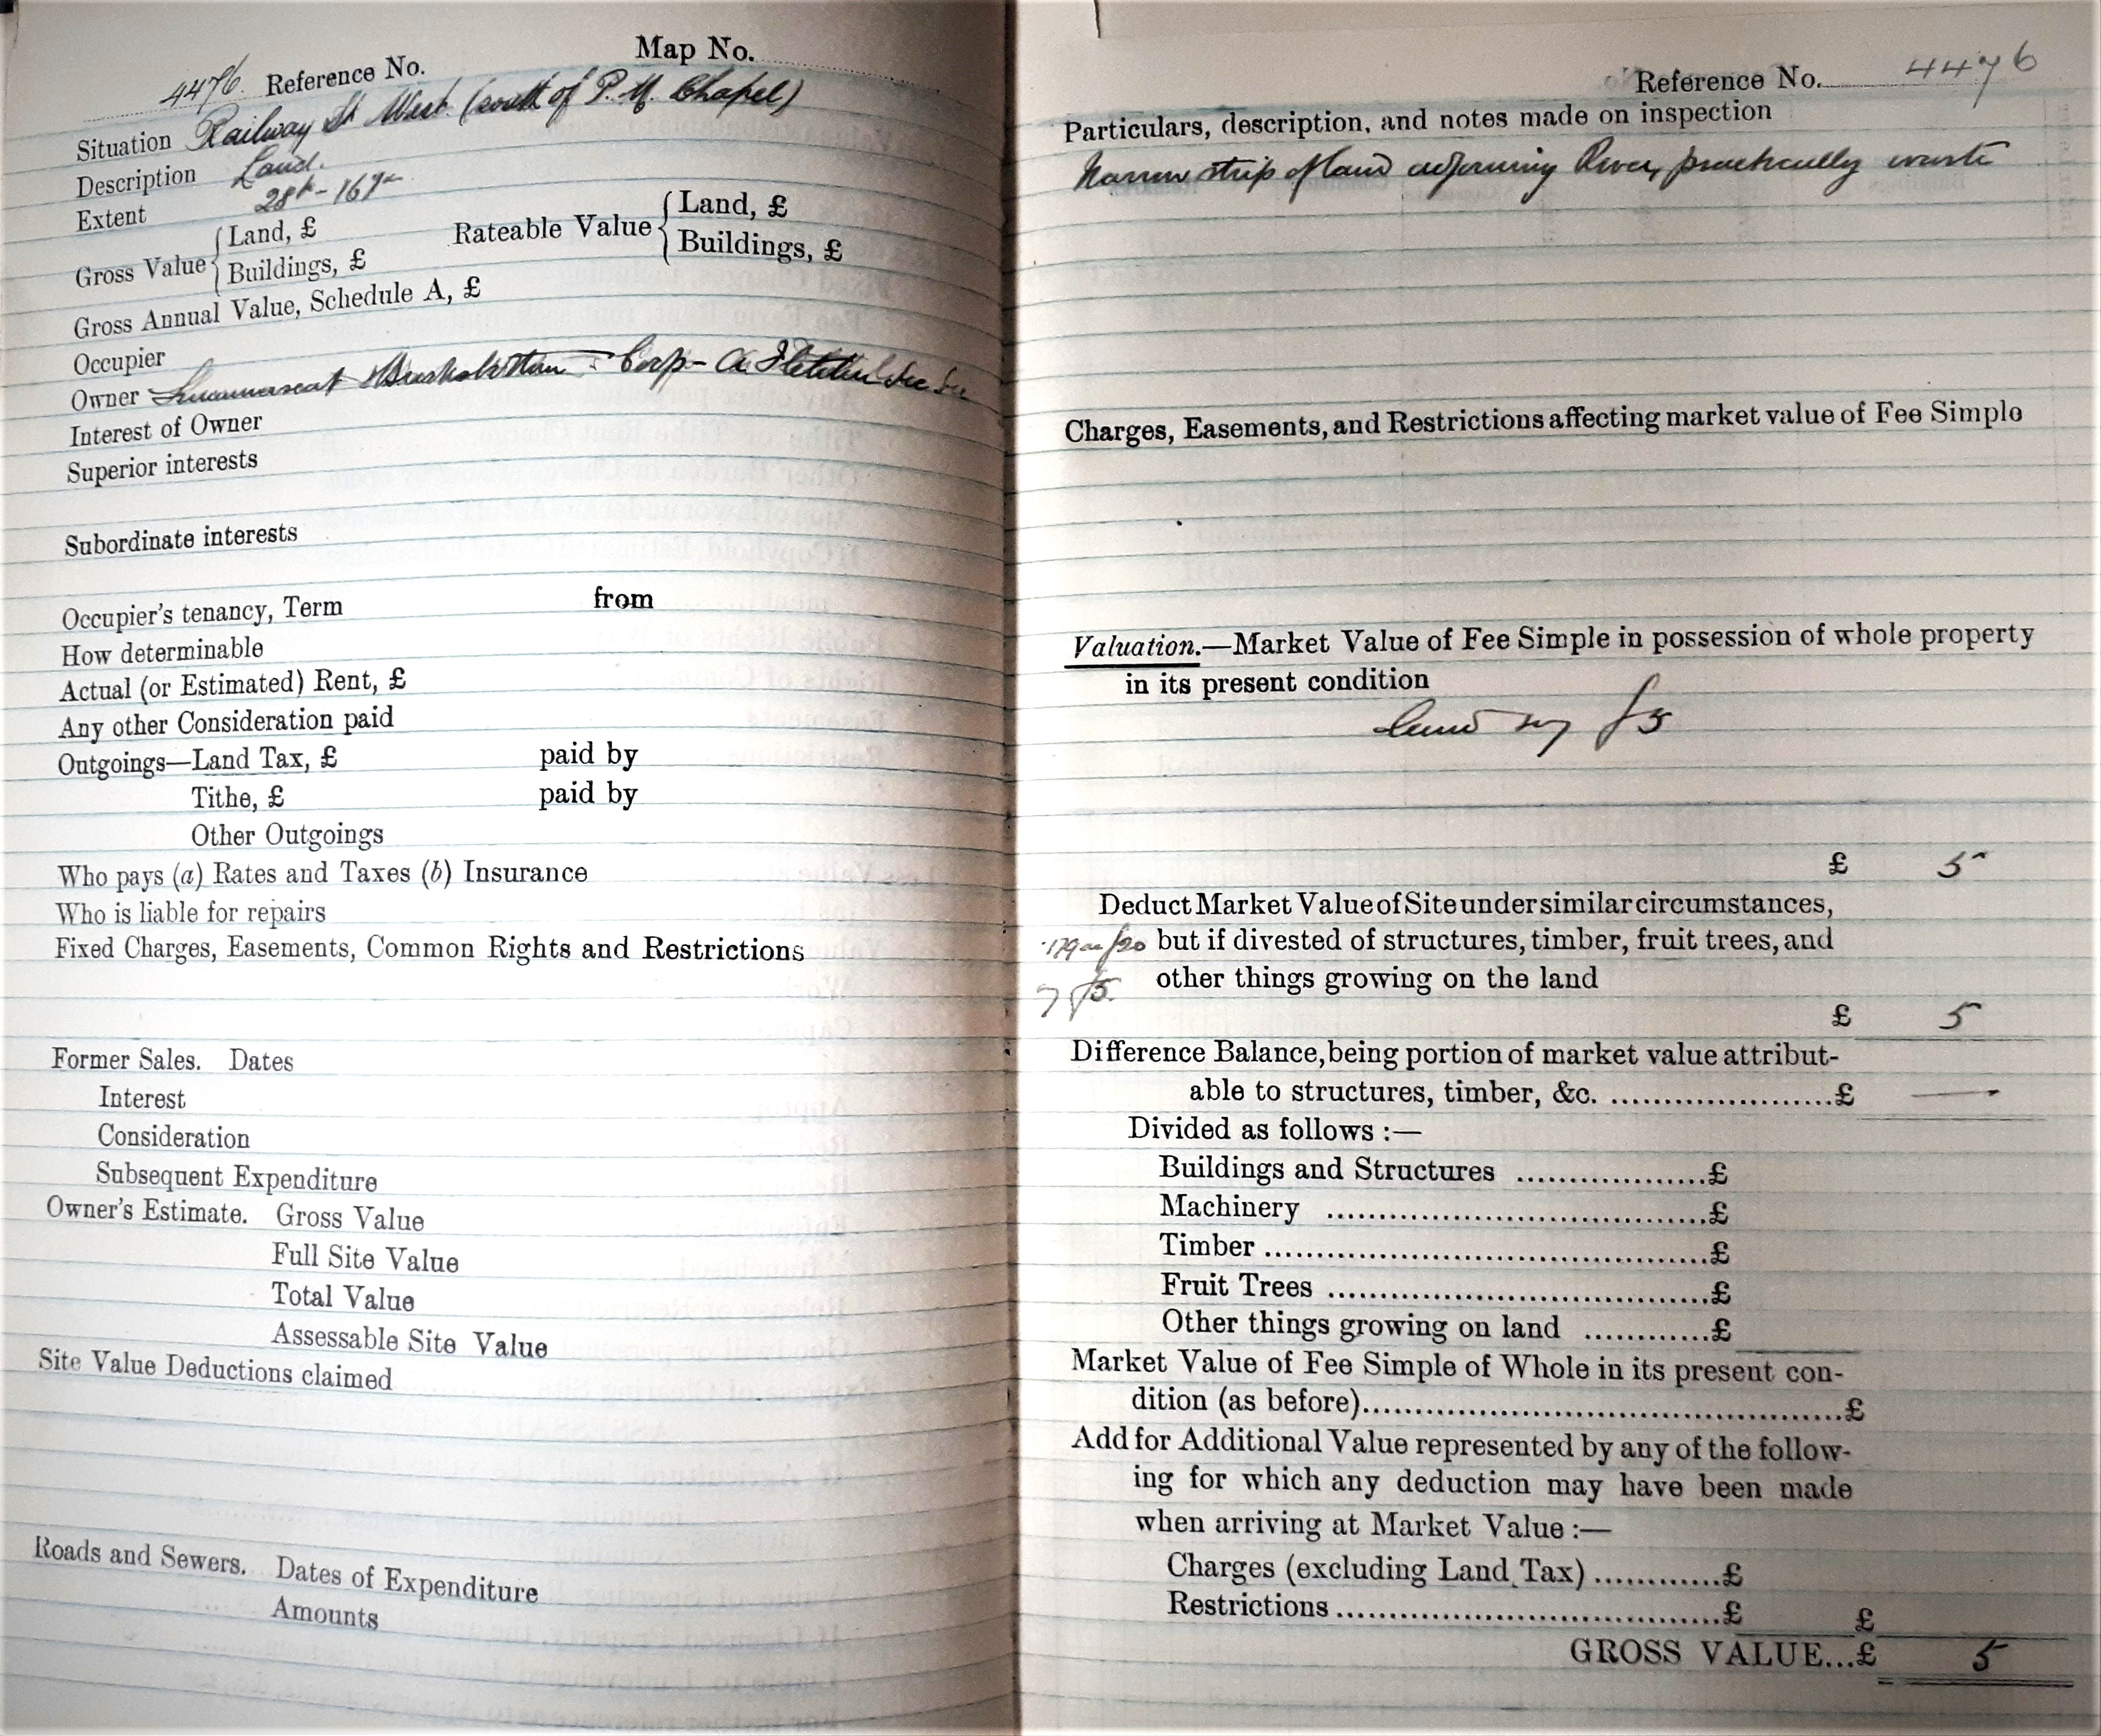 4476 Reference No. Map No.
Situation Railway St West (south of P. M. Chapel)
Description Land.
Extent 28p - 16y
Gross Value { Land, £
Buildings, £
Rateable Value { Land, £
Buildings, £
Gross Annual Value, Schedule A, £
Occupier
Owner Summerseat Corp - A Fletcher Sec
Interest of Owner
Superior interests
Subordinate interests
Occupier's tenancy, Term from
How determinable
Actual (or Estimated) Rent, £
Any other Consideration paid
Outgoings—Land Tax, £ paid by
Tithe, £ paid by
Other Outgoings
Who pays (a) Rates and Taxes (b) Insurance
Who is liable for repairs
Fixed Charges, Easements, Common Rights and Restrictions
Former Sales. Dates
Interest
Consideration
Subsequent Expenditure
Owner's Estimate. Gross Value
Full Site Value
Total Value
Assessable Site Value
Site Value Deductions claimed
Roads and Sewers. Dates of Expenditure
Amounts
Reference No. 4476
Particulars, description, and notes made on inspection
Narrow strip of land adjoining River, practically waste
Charges, Easements, and Restrictions affecting market value of Fee Simple
Valuation.—Market Value of Fee Simple in possession of whole property
in its present condition
Land say £5
£ 5
Deduct Market Value of Site under similar circumstances,
but if divested of structures, timber, fruit trees, and
other things growing on the land
£5.
£ 5
Difference Balance, being portion of market value attribut-
able to structures, timber, &c. ......................£ —
Divided as follows :—
Buildings and Structures ...................£
Machinery ......................................£
Timber ............................................£
Fruit Trees ......................................£
Other things growing on land ............£
Market Value of Fee Simple of Whole in its present con-
dition (as before)................................................£
Add for Additional Value represented by any of the follow-
ing for which any deduction may have been made
when arriving at Market Value :—
Charges (excluding Land Tax) .............£
Restrictions .......................................£ £
GROSS VALUE...£ 5